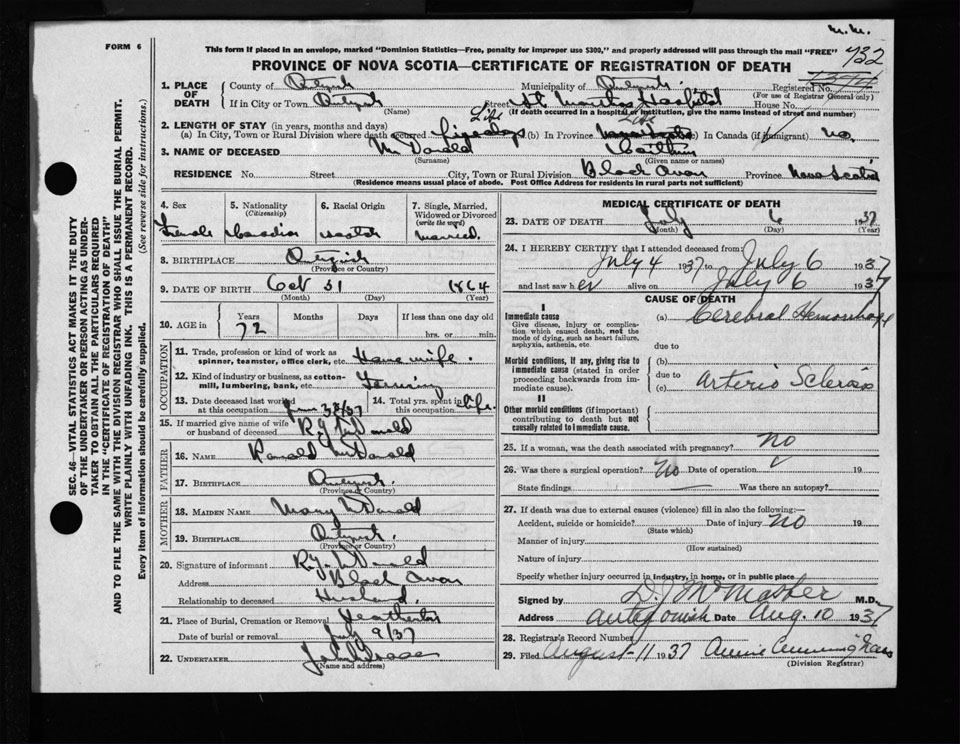 N.M.
FORM 6
This form if placed in an envelope, marked "Dominion Statistics—Free, penalty for improper use $300," and properly addressed will pass through the mail "FREE"
432
PROVINCE OF NOVA SCOTIA—CERTIFICATE OF REGISTRATION OF DEATH
1. PLACE OF DEATH
County of Antgnsh
Municipality of Antgnsh
Registered No.
(For use of Registrar General only)
If in City or Town Antgnsh
(Name)
Street St Marthas Hospital House No.
(If death occurred in a hospital or institution, give the name instead of street and number)
Life Life
2. LENGTH OF STAY (in years, months and days)
(a) In City, Town or Rural Division where death occured five days (b) In Province Nova Scotia In Canada (if immigrant) no.
3. NAME OF DECEASED McDonald
(Surname) (Given name or names)
RESIDENCE No. Street City, Town or Rural Division Black Avon Province Nova Scotia
(Residence means usual place of abode. Post Office Address for residents in rural parts not sufficient)
4. Sex
Female
5. Nationality
(Citizenship)
Canadian
6. Racial Origin
Scotch
7. Single, Married, Widowed or Divorced
(write the word)
Married.
8. BIRTHPLACE Antgnsh
(Province or Country)
9. DATE OF BIRTH Oct 31 1864
(Month) (Day) (Year)
10. AGE in
Years Months Days If less than one day
72 hrs. or min.
OCCUPATION
11. Trade, profession or kind of work as spinner, teamster, office clerk, etc. House wife.
12. Kind of industry or business, as cotton-mill, lumbering, bank, etc. Farming
13. Date deceased last worked at this occupation June 38/37
14. Total yrs. spent in this occupation life.
15. If married give name of wife or husband of deceased R.J. McDonald
FATHER
16. NAME Ronald McDonald
17. BIRTHPLACE Antgnsh.
(Province or Country)
MOTHER
18. MAIDEN NAME Mary McDonald
19. BIRTHPLACE Antgnsh.
(Province or Country)
20. Signature of informant R.J. McDonald
Address Black Avon
Relationship to deceased Husband.
21. Place of Burial, Cremation or Removal Heatherton
Date of burial or removal July 9/37
22. UNDERTAKER
(Name and address)
MEDICAL CERTIFICATE OF DEATH
23. DATE OF DEATH July 6 1937
(Month) (Day) (Year)
24. I HEREBY CERTIFY that I attended deceased from
July 4 1937 to July 6 1937
and last saw her alive on July 6 1937
CAUSE OF DEATH
I
Immediate cause
Give disease, injury or complication which caused death, not the mode of dying, such as heart failure, asphyxia, asthenia, etc.
(a) Cerebral Hemorrhage
due to
Morbid conditions, if any, giving rise to immediate cause (stated in order proceeding backwards from immediate cause).
(b)
due to
(c) Arterio Sclerosis
II
Other morbid conditions (if important) contributing to death but not causally related to immediate cause.
25. If a woman, was the death associated with pregnancy? No
26. Was there a surgical operation? No Date of operation 19
State findings Was there an autopsy?
27. If death was due to external causes (violence) fill in also the following:—
Accident, suicide or homicide? Date of injury No 19
(State which)
Manner of injury
(How sustained)
Nature of injury
Specify whether injury occurred in industry, in home, or in public place
Signed by D.J. McMaster M.D.
Address Antigonish Date Aug. 10 1937
28. Registrar's Record Number
29. Filed August 11 1937 Annie Cunningham
(Division Registrar)
SEC. 46—VITAL STATISTICS ACT MAKES IT THE DUTY
OF THE UNDERTAKER OR PERSON ACTING AS UNDER-
TAKER TO OBTAIN ALL THE PARTICULARS REQUIRED
IN THE "CERTIFICATE OF REGISTRATION OF DEATH"
AND TO FILE THE SAME WITH THE DIVISION REGISTRAR WHO SHALL ISSUE THE BURIAL PERMIT.
WRITE PLAINLY WITH UNFADING INK. THIS IS A PERMANENT RECORD.
Every item of information should be carefully supplied. (See reverse side for instructions.)